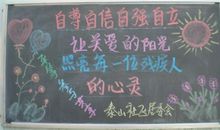 自尊自信自强自立
让关爱的阳光
照亮每一位残疾人
的心灵
泰山社区居委会